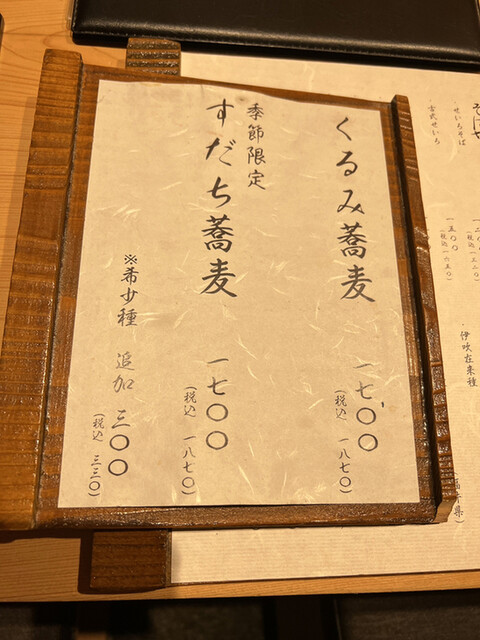 くるみ蕎麦 一七〇〇
(税込 一八七〇)
季節限定
すだち蕎麦 一七〇〇
(税込 一八七〇)
※希少種 追加 三〇〇
(税込 三三〇)
せいろそば
古式せいろ
一五〇〇
(税込 一六五〇)
伊吹在来種